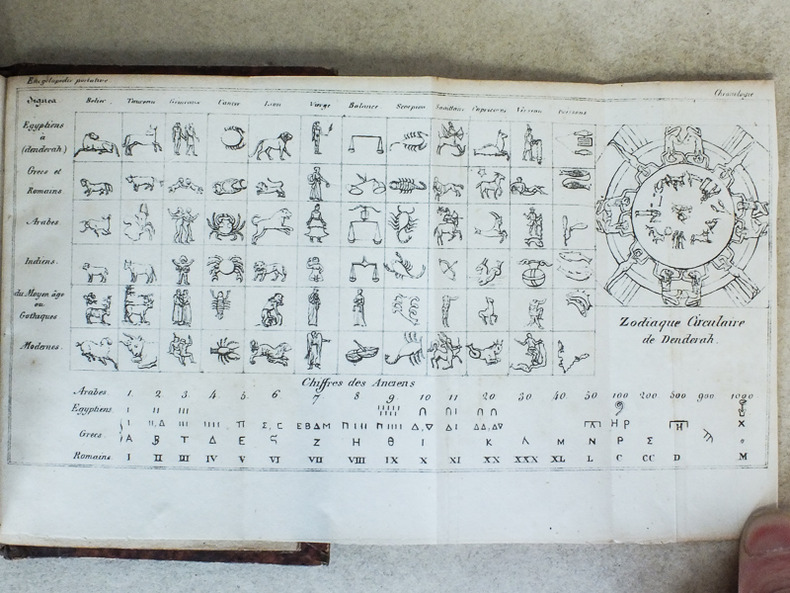 Encyclopédie portative
Chronologie
Signes Belier Taureau Gemeaux Cancer Lion Vierge Balance Scorpion Sagittaire Capricorne Verseau Poissons
Egyptiens
à
(denderah)
Grecs et
Romains
Arabes.
Indiens.
du Moyen âge
ou
Gothiques
Modernes.
Zodiaque Circulaire
de Denderah.
Chiffres des Anciens
Arabes 1 2 3 4 5 6 7 8 9 10 11 20 30 40 50 100 200 500 900 1000
Egyptiens I II III
Grecs
A B Δ E Z H Θ I K Λ M N P Σ
Romains I II III IV V VI VII VIII IX X XI XX XXX XL L C CC D M